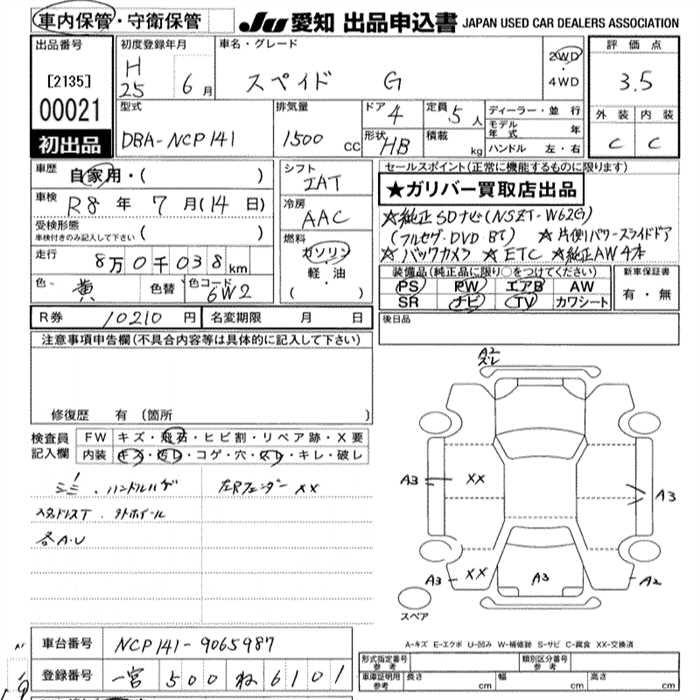 車内保管・守衛保管
JU 愛知 出品申込書 JAPAN USED CAR DEALERS ASSOCIATION
出品番号 [2135] 00021 初出品
初度登録年月 H 25 6月
車名・グレード スペイド G
2WD・4WD
評価点 3.5
外装 内装
C C
型式 DBA-NCP141
排気量 1500 cc
ドア 4
形状 HB
定員 5人
積載 kg
ディーラー・並行
モデル年式 年
ハンドル 左・右
車歴 自家用・( )
車検 R8年 7月(14日)
受検形態
車検付きのみ記入して下さい ( )
走行 8万0千038km
色 黄 色替 色コード 6W2
シフト IAT
冷房 AAC
燃料 ガソリン
軽・油
( )
セールスポイント(正常に機能するものに限ります)
★ガリバー買取店出品
☆純正SDナビ(NSZT-W62G)
(フルセグ・DVD BT) ☆片側パワースライドドア
☆バックカメラ ☆ETC ☆純正AW4本
装備品(純正品に限り○をつけてください)
PS PW エアB AW
SR ナビ TV カワシート
新車保証書
有・無
R券 10210円 名変期限 月 日
後日品
注意事項申告欄(不具合内容等は具体的に記入して下さい)
修復歴 有 (箇所 )
検査員記入欄
FW キズ・飛石・ヒビ割・リペア跡・X要
内装 キズ・汚レ・コゲ・穴・スレ・キレ・破レ
ハンドルハゲ 左Rフェンダー XX
各A.U
A2
スレ
A3 XX A3
A3 XX A3 A2
スペア
A-キズ E-エクボ U-凹み W-補修跡 S-サビ C-腐食 XX-交換済
車台番号 NCP141-9065987
登録番号 一宮 500 ね 6101
形式指定番号 参考 類別区分番号 参考
車庫証明用 参考 長さ cm 幅 cm 高さ cm